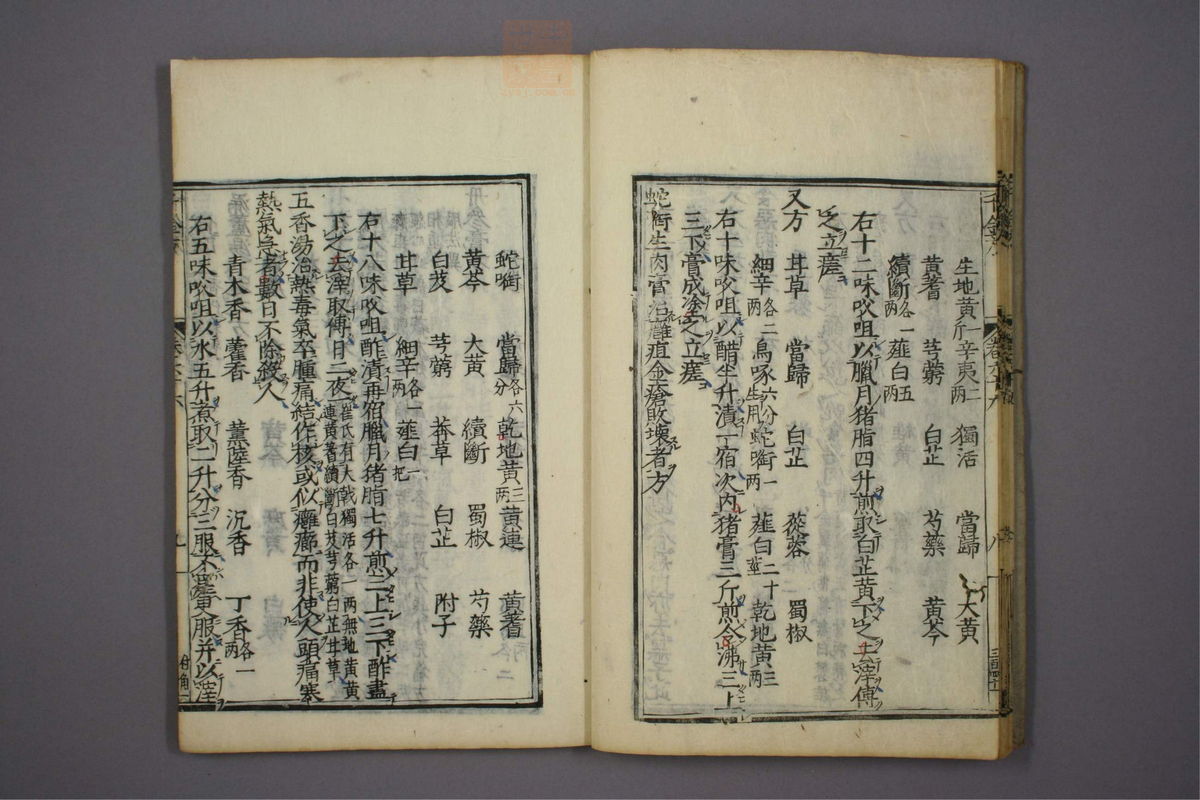 生地黄一斤辛夷二两　獨活　當歸　大黄
黄耆　芎藭　白芷　芍藥　黄芩
續斷各一两薤白五两
右十二味㕮咀以臘月猪脂四升煎取白芷黄下之去滓傅
之立瘥
又方　甘草　當歸　白芷　蓯蓉　蜀椒
細辛各二两烏啄六分生用蛇銜一两薤白二十莖乾地黄三两
右十味㕮咀以醋半升漬一宿次内猪膏三斤煎令沸三上
三下膏成塗之立瘥
蛇銜生肉膏治癰疽金瘡敗壞者方
蛇銜　當歸各六分乾地黄三两黄連　黄耆
黄芩　大黄　續斷　蜀椒　芍藥
白芨　芎藭　莽草　白芷　附子
甘草　細辛各一两薤白一把
右十八味㕮咀酢漬再宿臘月猪脂七升煎三上三下酢盡
下之去滓取傅日三夜一崔氏有大戟獨活各一两無地黄黄連黄耆續斷白芨芎藭白芷甘草
五香湯治熱毒氣卒腫痛結作核或似癰癤而非使人頭痛寒
熱氣急者數日不除殺人
青木香　藿香　薫陸香　沉香　丁香各一两
右五味㕮咀以水五升煮取二升分三服不瘥更服并以滓